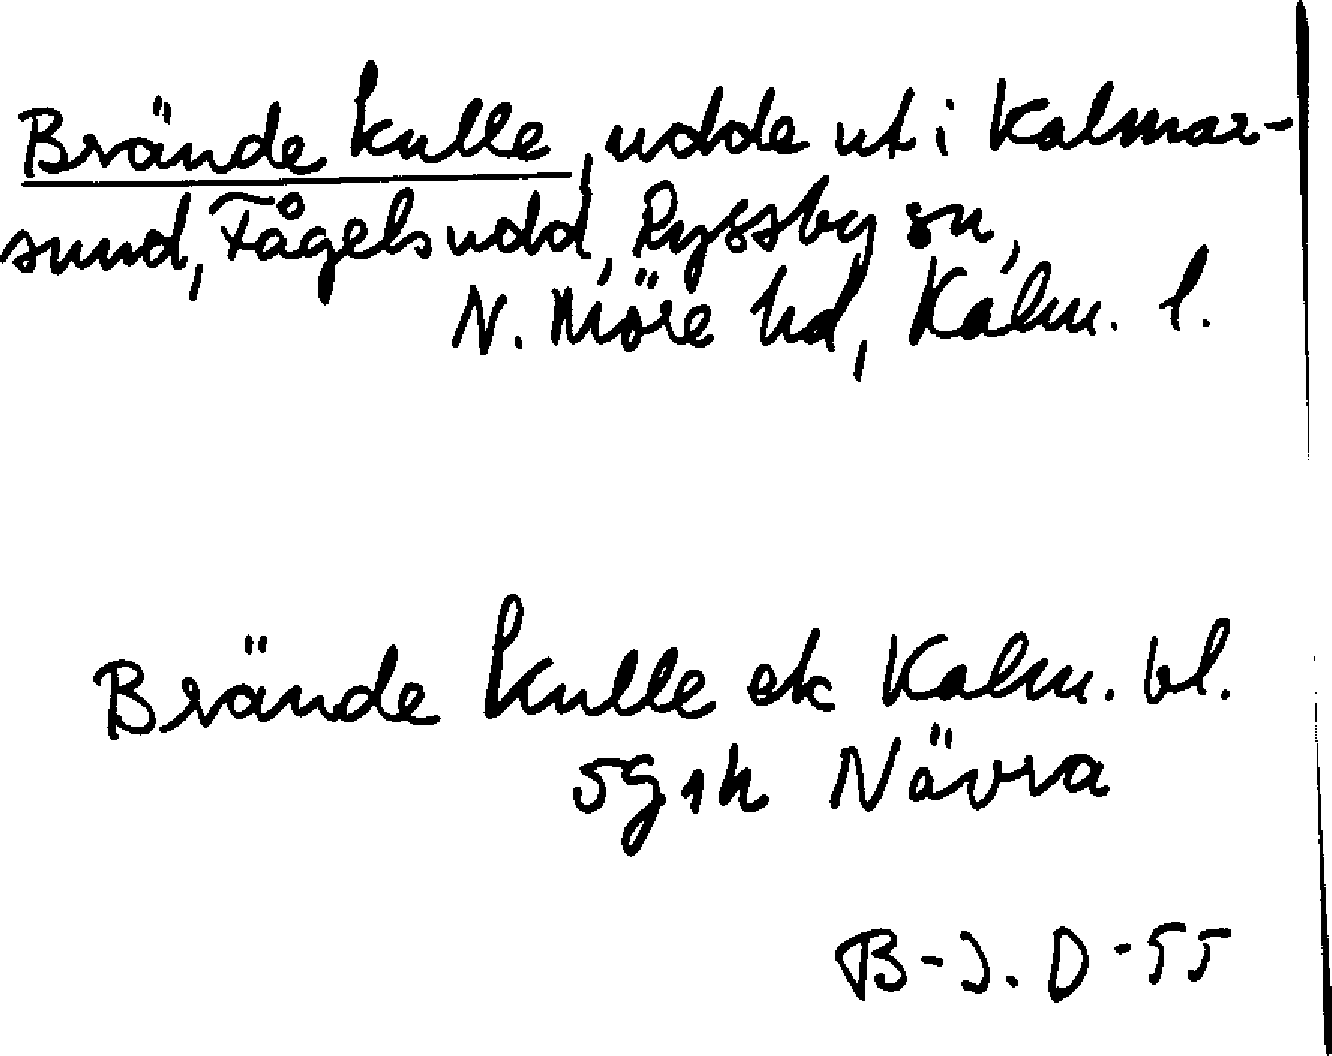 Brände kulle, udde ut i Kalmar-
sund, Fågelsudd, Ryssby sn,
N. Möre hd, Kalm. l.
Brände kulle ek Kalm. bl.
5g1h Nävra
B-J. D-55